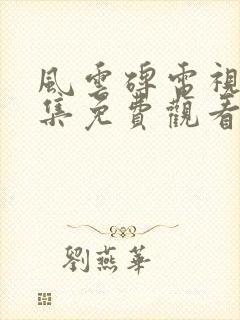 風雲碑電視
集免費觀看
劉燕華